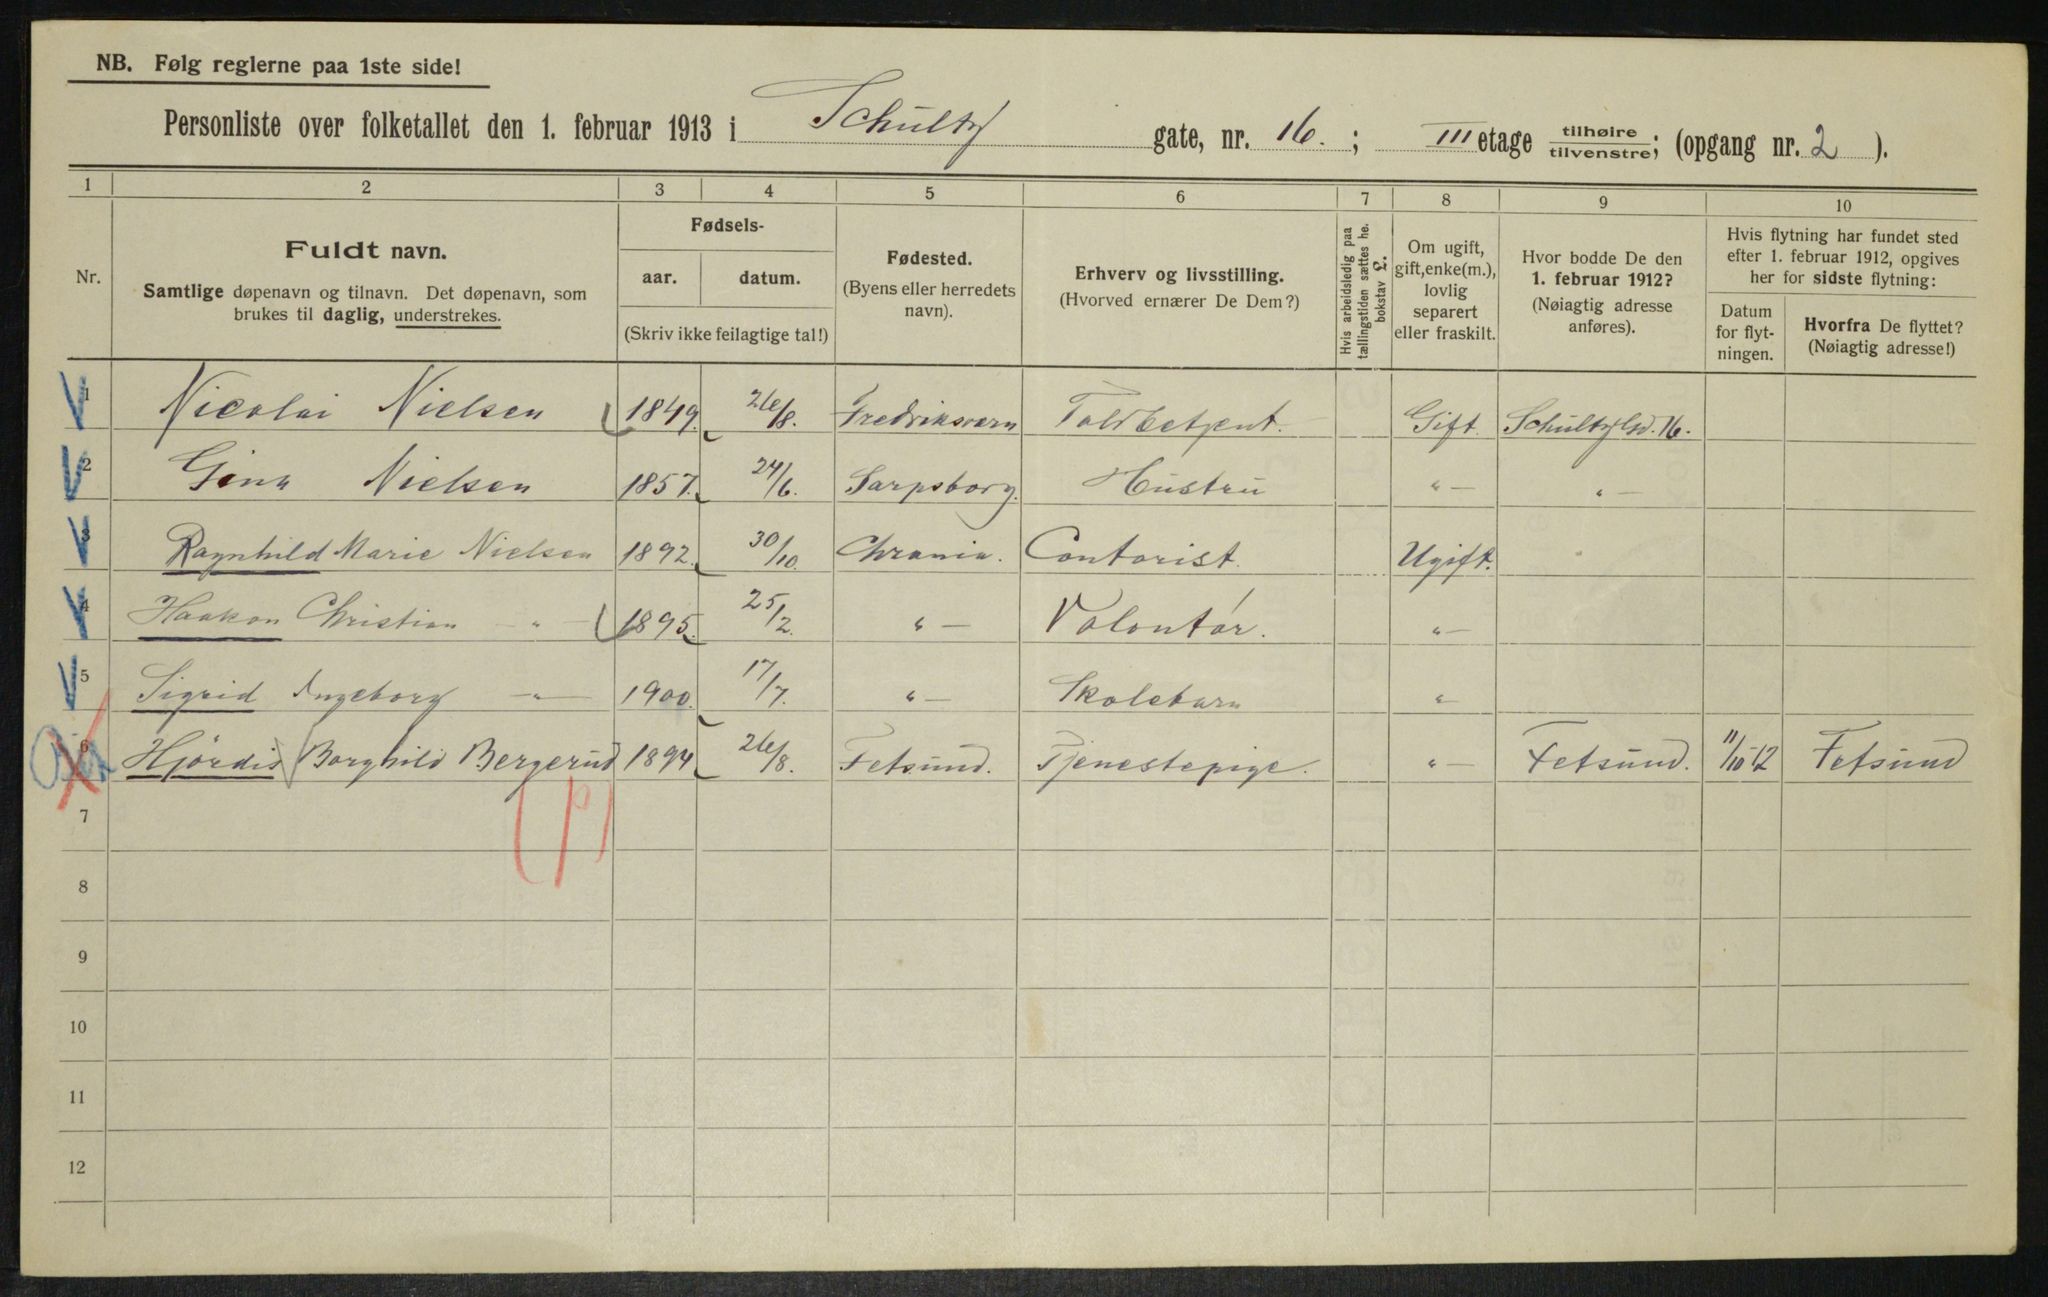 NB. Følg reglerne paa 1ste side!
Personliste over folketallet den 1. februar 1913 i Schultz gate, nr. 16. ; III etage tilhøire tilvenstre; (opgang nr. 2 ).
1 2 3 4 5 6 7 8 9 10
Nr.
Fuldt navn.
Samtlige døpenavn og tilnavn. Det døpenavn, som
brukes til daglig, understrekes.
Fødsels-
aar. datum.
(Skriv ikke feilagtige tal!)
Fødested.
(Byens eller herredets
navn).
Erhverv og livsstilling.
(Hvorved ernærer De Dem?)
Hvis arbeidsledig paa
tællingstiden sættes he.
bokstav £.
Om ugift,
gift, enke(m.),
lovlig
separert
eller fraskilt.
Hvor bodde De den
1. februar 1912?
(Nøiagtig adresse
anføres).
Hvis flytning har fundet sted
efter 1. februar 1912, opgives
her for sidste flytning:
Datum
for flyt-
ningen.
Hvorfra De flyttet?
(Nøiagtig adresse!)
1 Nicolai Nielsen 1849. 26/8. Fredriksværn Toldbetjent. Gift 16.
2 Gina Nielsen 1857. 24/6. Sarpsborg. Hustru " — " —
3 Ragnhild Marie Nielsen 1892. 30/10. Chrania. Contorist. Ugift. "
4 Haakon Christian — " — 1895. 25/2. " — Volontør. " —
5 Sigrid Ingeborg — " — 1900. 17/7. " — Skolebarn " —
6 Hjørdis Borghild Bergerud 1894 26/8. Fetsund. Tjenestepige. " — Fetsund. 11/10 12 Fetsund
7
8
9
10
11
12